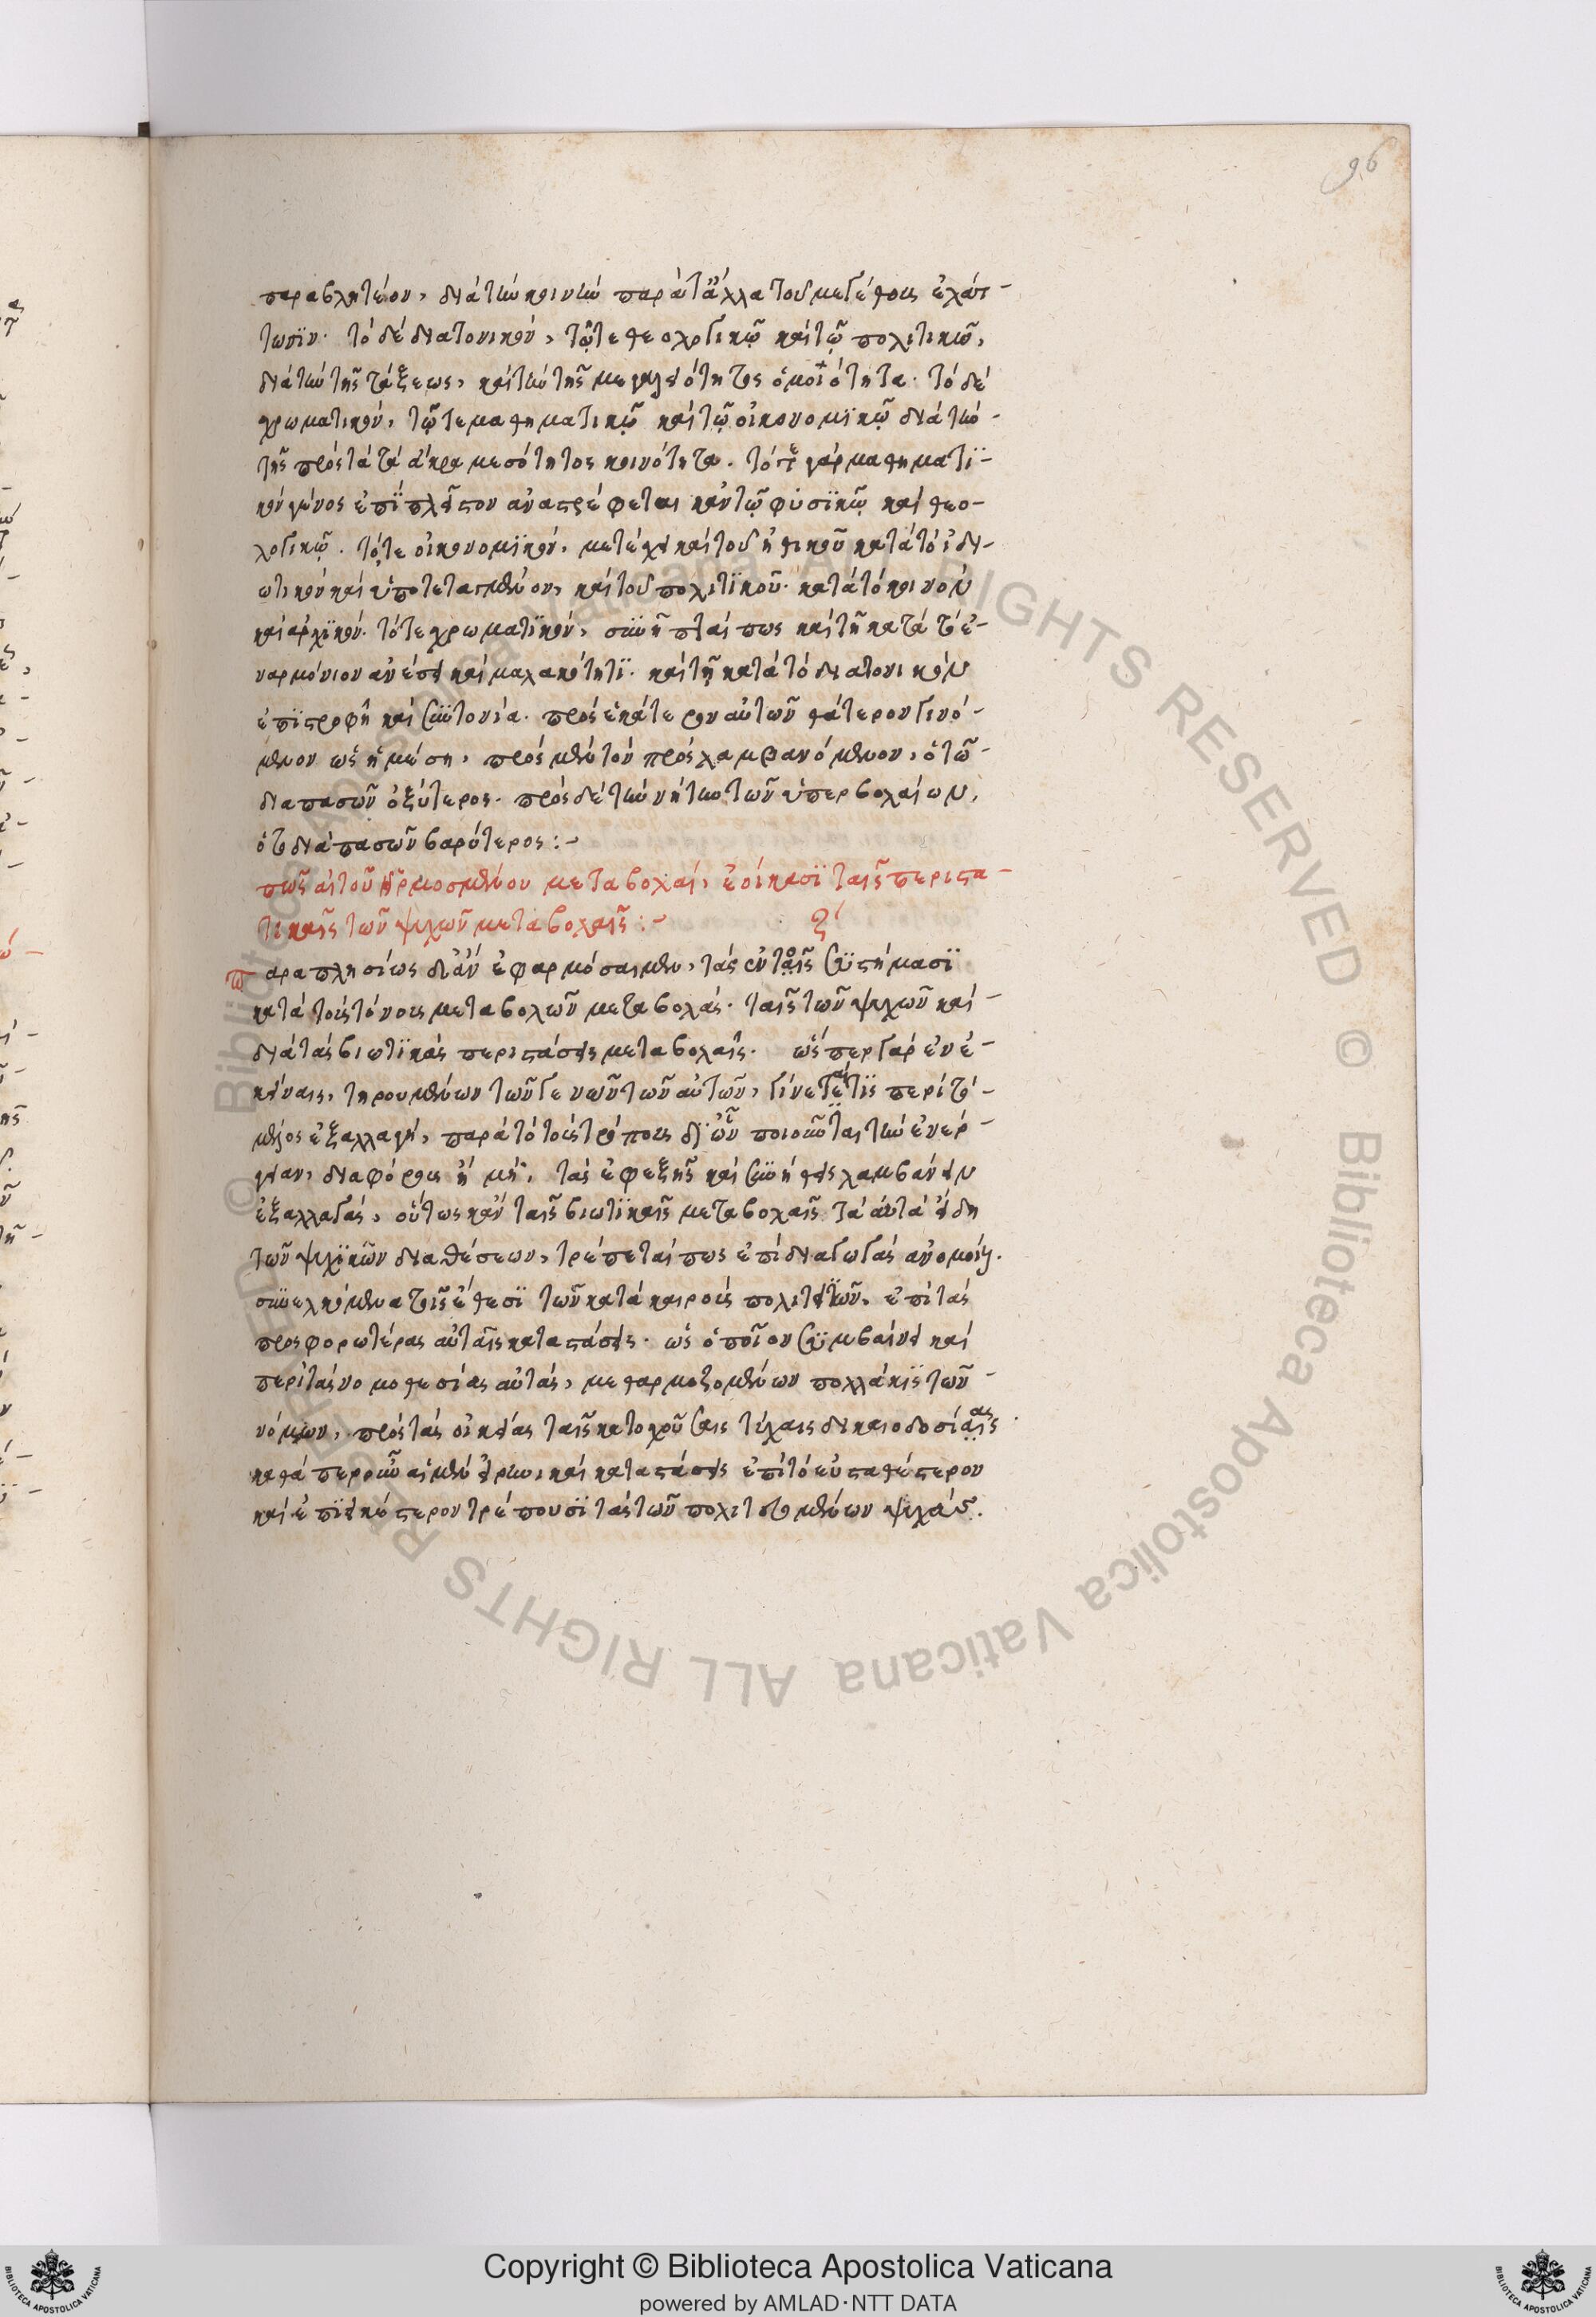 96
παραβλητέον, διὰ τὴν κοινὴν παρὰ τἄλλα τοῦ μεγέθους ἐλάτ-
τωσιν· τὸ δὲ διατονικὸν, τῷ τε θεολογικῷ καὶ τῷ πολιτικῷ,
διὰ τὴν τῆς τάξεως, καὶ τὴν τῆς μεγαλειότητος ὁμοιότητα· τὸ δὲ
χρωματικὸν, τῷ τε μαθηματικῷ καὶ τῷ οἰκονομικῷ διὰ τὴν
τῆς πρὸς τὰ τὰ ἄκρα μεσότητος κοινότητα. τό τε γὰρ μαθηματι-
κὸν γένος ἐπὶ πλεῖστον ἀναστρέφεται κἀν τῷ φυσικῷ καὶ θεο-
λογικῷ. τό τε οἰκονομικὸν, μετέχει καὶ τοῦ ἠθικοῦ κατὰ τὸ ἰδι-
ωτικὸν καὶ ὑποτεταγμένον, καὶ τοῦ πολιτικοῦ· κατὰ τὸ κοινὸν
καὶ ἀρχικόν. τό τε χρωματικὸν, συνῆπταί πως καὶ τῇ κατὰ τὸ ἐ-
ναρμόνιον ἀνέσει καὶ μαλακότητι· καὶ τῇ κατὰ τὸ διατονικὸν
ἐπιστροφῇ καὶ συντονίᾳ· πρὸς ἑκάτερον αὐτῶν θάτερον γινό-
μενον ὡς ἡ μέση, πρὸς μὲν τὸν προσλαμβανόμενον, ὁ τῶ
διαπασῶν ὀξύτερος· πρὸς δὲ τὴν νήτην τῶν ὑπερβολαίων,
ὁ τῶ διαπασῶν βαρύτερος:-
πῶς αἱ τοῦ ἡρμοσμένου μεταβολαὶ, ἐοίκασι ταῖς περιστα-
τικαῖς τῶν ψυχῶν μεταβολαῖς:- ζʹ
παραπλησίως δ' ἂν ἐφαρμόσαιμεν, τὰς ἐν τοῖς συστήμασι
κατὰ τοὺς τόνους μεταβολῶν μεταβολὰς· ταῖς τῶν ψυχῶν καὶ
διὰ τὰς βιωτικὰς περιστάσεις μεταβολαῖς. ὥσπερ γὰρ ἐν ἐ-
κείναις, τηρουμένων τῶν γενῶν τῶν αὐτῶν, γίνεταί τις περὶ τὸ
μέλος ἐξαλλαγὴ, παρὰ τὸ τοὺς τόπους δι' ὧν ποιοῦνται τὴν ἐνέρ-
γειαν, διαφόρους ἢ μὴ, τὰς ἐφεξῆς καὶ συνήθεις λαμβάνειν
ἐξαλλαγὰς, οὕτως κἀν ταῖς βιωτικαῖς μεταβολαῖς τὰ αὐτὰ εἴδη
τῶν ψυχικῶν διαθέσεων, τρέπεταί πως ἐπὶ διαγωγὰς ἀνομοίους.
συνελκόμενα τοῖς ἔθεσι τῶν κατὰ καιροὺς πολιτειῶν, ἐπὶ τὰς
προσφορωτέρας αὐταῖς καταστάσεις· ὡς ὁποῖον συμβαίνει καὶ
περὶ τὰς νομοθεσίας αὐτὰς, μεθαρμοζομένων πολλάκις τῶν
νόμων, πρὸς τὰς οἰκείας ταῖς κατοχούσαις τύχαις δικαιοδοσίας
καθάπερ οὖν αἱ μὲν εἰρηνικαὶ καταστάσεις ἐπὶ τὸ εὐσταθέστερον
καὶ ἐπιεικέστερον τρέπουσι τὰς τῶν πολιτευομένων ψυχάς.
© Biblioteca Apostolica Vaticana ALL RIGHTS RESERVED
Copyright © Biblioteca Apostolica Vaticana
powered by AMLAD·NTT DATA